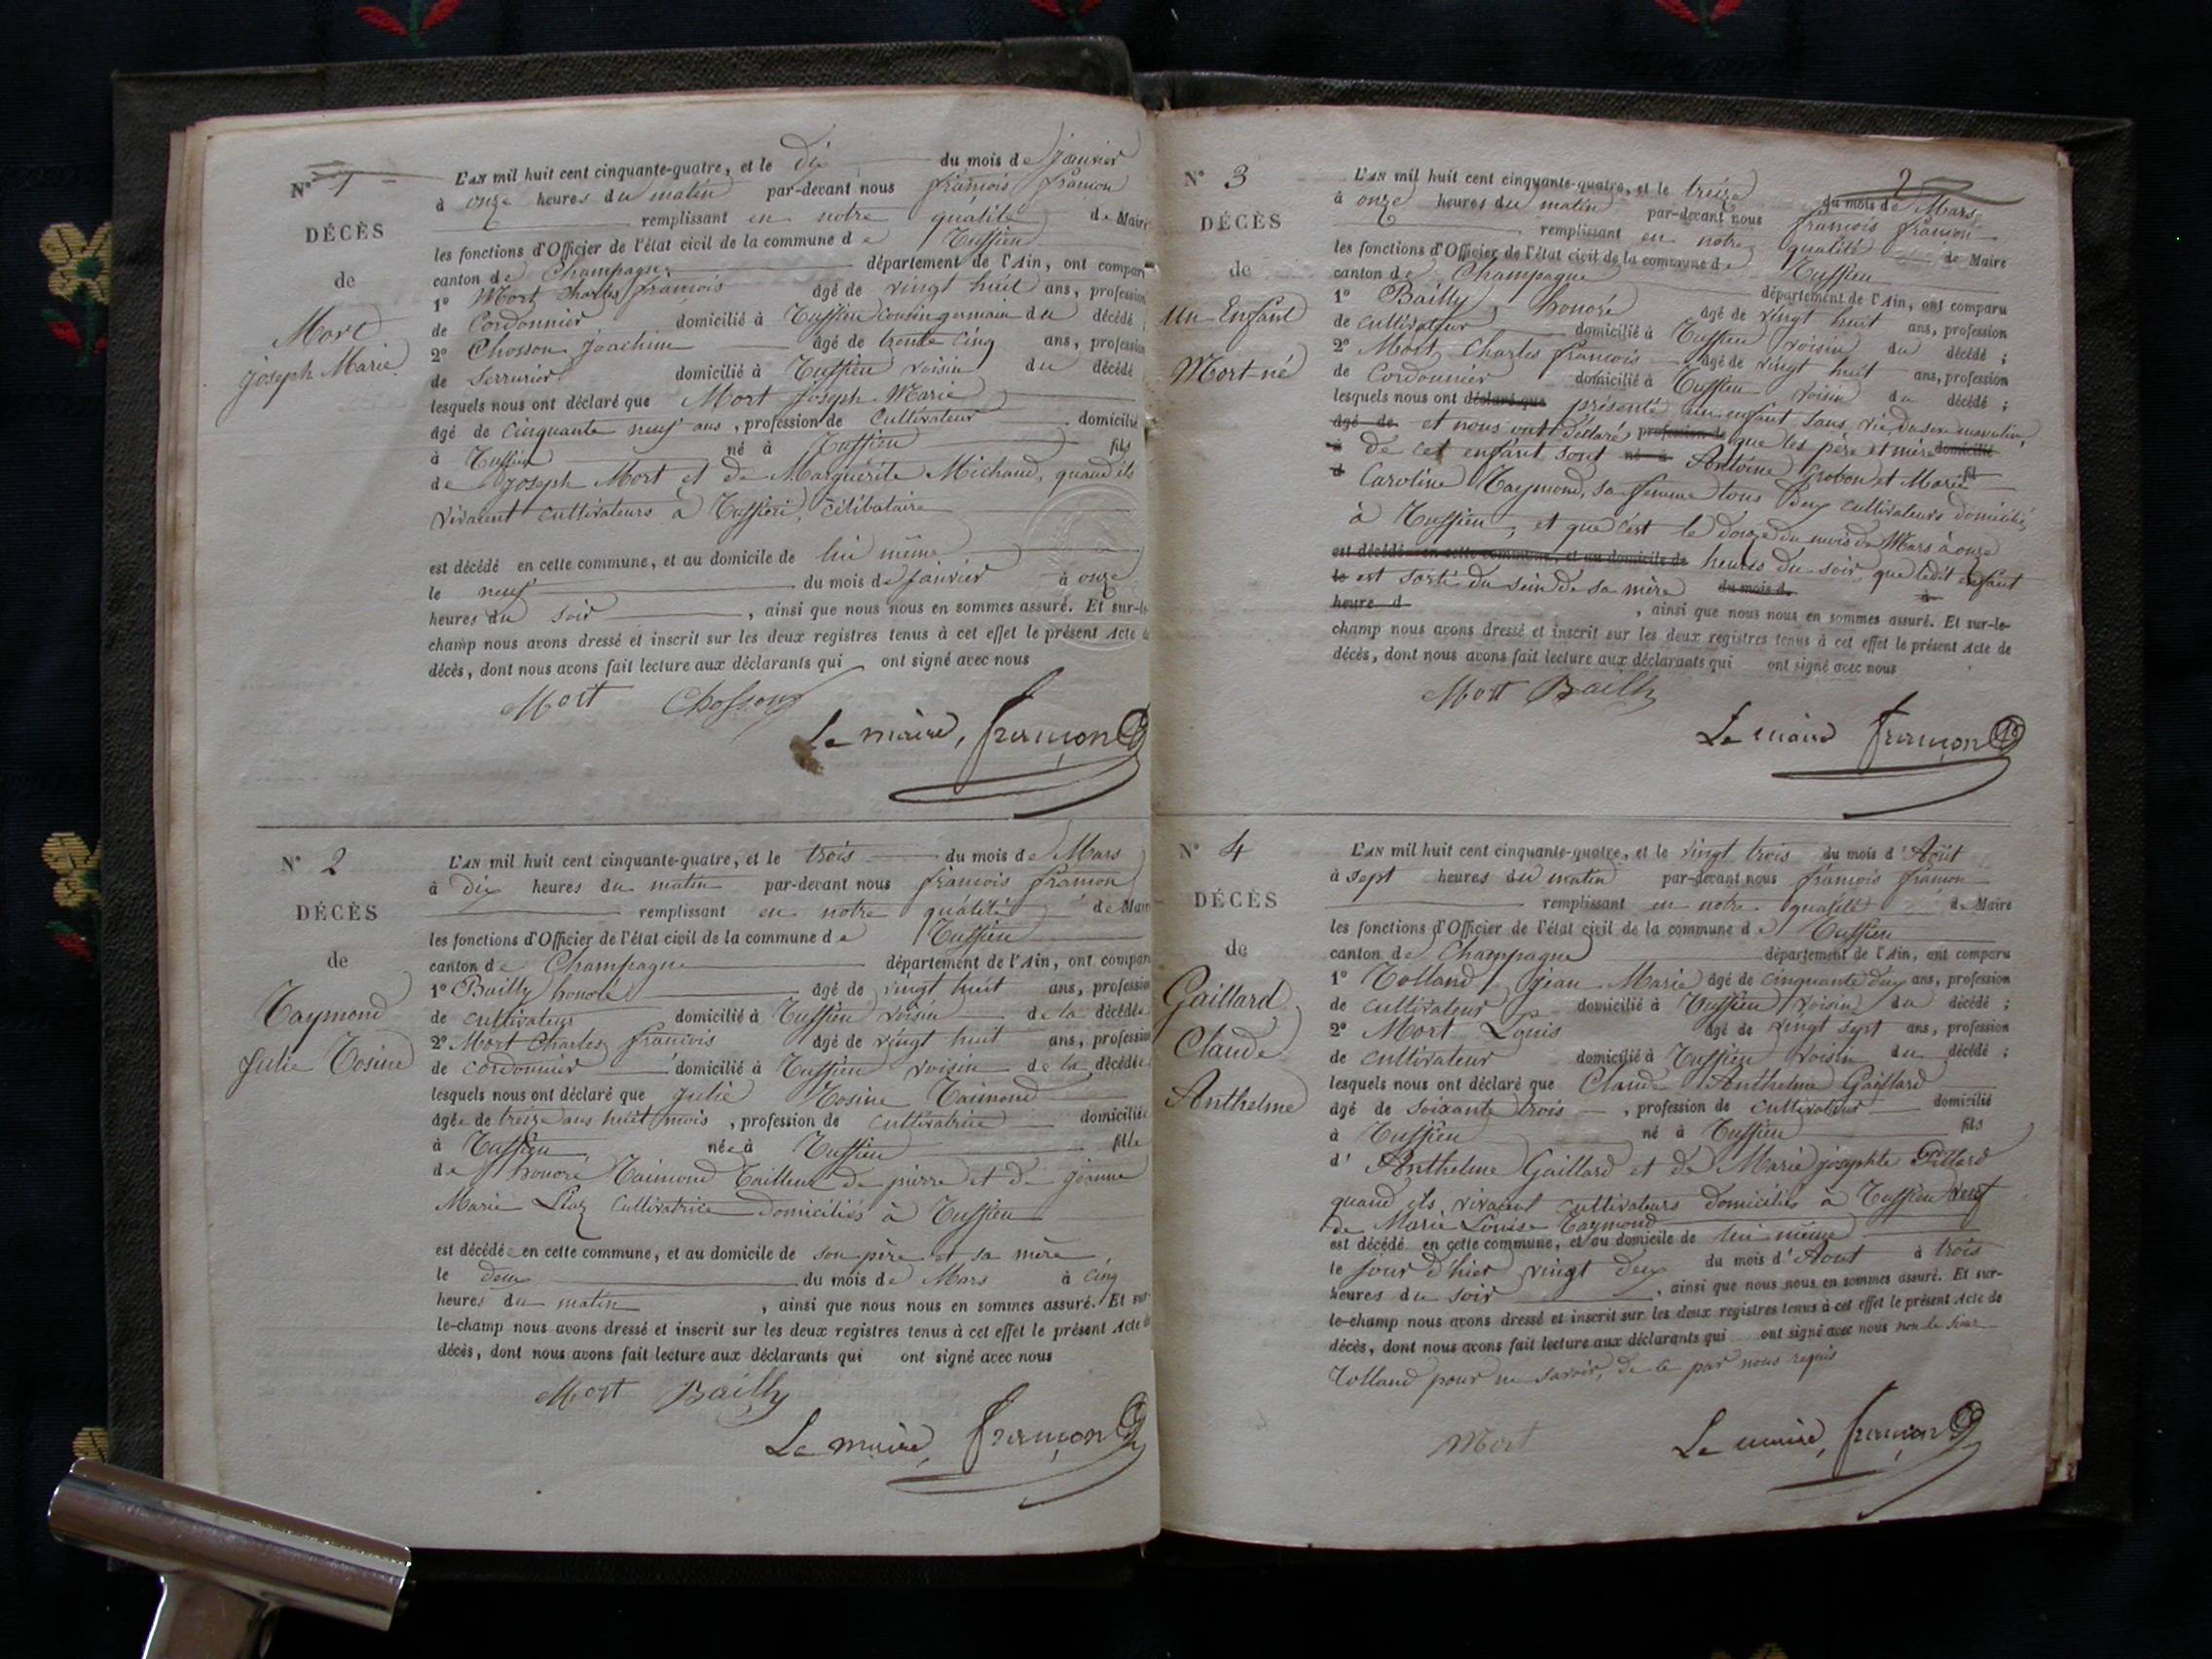 N° 1
DÉCÈS
de
Mort
Joseph Marie
L'AN mil huit cent cinquante-quatre, et le dix du mois de Janvier
à onze heures du matin par-devant nous françois françon
remplissant en notre qualité de Maire
les fonctions d'Officier de l'état civil de la commune de Ruffieu
canton de Champagne département de l'Ain, ont comparu
1° Mort Charles françois âgé de vingt huit ans, profession
de Cordonnier domicilié à Ruffieu cousin germain du décédé
2° Chosson Joachim âgé de trente cinq ans, profession
de Serrurier domicilié à Ruffieu voisin du décédé
lesquels nous ont déclaré que Mort Joseph Marie
âgé de cinquante neuf ans, profession de Cultivateur domicilié
à Ruffieu né à Ruffieu fils
de Joseph Mort et de Marguérite Michaud, quand ils
vivaient cultivateurs à Ruffieu, célibataire
est décédé en cette commune, et au domicile de lui même
le neuf du mois de Janvier à onze
heures du soir, ainsi que nous nous en sommes assuré. Et sur-le-
champ nous avons dressé et inscrit sur les deux registres tenus à cet effet le présent Acte de
décès, dont nous avons fait lecture aux déclarants qui ont signé avec nous
Mort Chosson
Le maire, françon
N° 2
DÉCÈS
de
Raymond
Julie Rosine
L'AN mil huit cent cinquante-quatre, et le trois du mois de Mars
à dix heures du matin par-devant nous françois françon
remplissant en notre qualité de Maire
les fonctions d'Officier de l'état civil de la commune de Ruffieu
canton de Champagne département de l'Ain, ont comparu
1° Bailly honoré âgé de vingt huit ans, profession
de cultivateur domicilié à Ruffieu voisin de la décédée
2° Mort Charles françois âgé de vingt huit ans, profession
de cordonnier domicilié à Ruffieu voisin de la décédée
lesquels nous ont déclaré que Julie Rosine Raimond
âgée de treize ans huit mois, profession de cultivatrice domiciliée
à Ruffieu née à Ruffieu fille
de honoré Raimond tailleur de pierre et de jeanne
Marie Liaz cultivatrice domiciliés à Ruffieu
est décédée en cette commune, et au domicile de son père et sa mère,
le deux du mois de Mars à cinq
heures du matin, ainsi que nous nous en sommes assuré. Et sur-
le-champ nous avons dressé et inscrit sur les deux registres tenus à cet effet le présent Acte de
décès, dont nous avons fait lecture aux déclarants qui ont signé avec nous
Mort Bailly
Le maire, françon
2
N° 3
DÉCÈS
de
Un Enfant
Mort-né
L'AN mil huit cent cinquante-quatre, et le treize du mois de Mars
à onze heures du matin par-devant nous françois françon
remplissant en notre qualité de Maire
les fonctions d'Officier de l'état civil de la commune de Ruffieu
canton de Champagne département de l'Ain, ont comparu
1° Bailly honoré âgé de vingt huit ans, profession
de cultivateur domicilié à Ruffieu voisin du décédé ;
2° Mort Charles françois âgé de vingt huit ans, profession
de Cordonnier domicilié à Ruffieu voisin du décédé ;
lesquels nous ont déclaré que présenté un enfant sans vie, du sexe masculin,
âgé de et nous ont déclaré profession de que les père et mère domicilié
à de cet enfant sont né à Antoine Grobon et Marie fil
d Caroline Raymond, sa femme tous deux cultivateurs domiciliés
à Ruffieu, et que c'est le douze du mois de Mars à onze
est décédé en cette commune, et au domicile de heures du soir, que ledit enfant
le est sorti du sein de sa mère du mois d à
heure d, ainsi que nous nous en sommes assuré. Et sur-le-
champ nous avons dressé et inscrit sur les deux registres tenus à cet effet le présent Acte de
décès, dont nous avons fait lecture aux déclarants qui ont signé avec nous
Mort Bailly
Le maire françon
N° 4
DÉCÈS
de
Gaillard
Claude
Anthelme
L'AN mil huit cent cinquante-quatre, et le vingt trois du mois d'Août
à sept heures du matin par-devant nous françois françon
remplissant en notre qualité de Maire
les fonctions d'Officier de l'état civil de la commune de Ruffieu
canton de Champagne département de l'Ain, ont comparu
1° Rolland Jean Marie âgé de cinquante deux ans, profession
de cultivateur domicilié à Ruffieu voisin du décédé ;
2° Mort Louis âgé de vingt sept ans, profession
de cultivateur domicilié à Ruffieu voisin du décédé ;
lesquels nous ont déclaré que Claude Anthelme Gaillard
âgé de soixante trois, profession de cultivateur domicilié
à Ruffieu né à Ruffieu fils
d'Anthelme Gaillard et de Marie josephte Pillard
quand ils vivaient cultivateurs domiciliés à Ruffieu veuf
de Marie Louise Raymond
est décédé en cette commune, et au domicile de lui même
le jour d'hier vingt deux du mois d'Aout à trois
heures du soir, ainsi que nous nous en sommes assuré. Et sur-
le-champ nous avons dressé et inscrit sur les deux registres tenus à cet effet le présent Acte de
décès, dont nous avons fait lecture aux déclarants qui ont signé avec nous non le sieur
Rolland pour ne savoir, de ce par nous requis
Mort
Le maire, françon